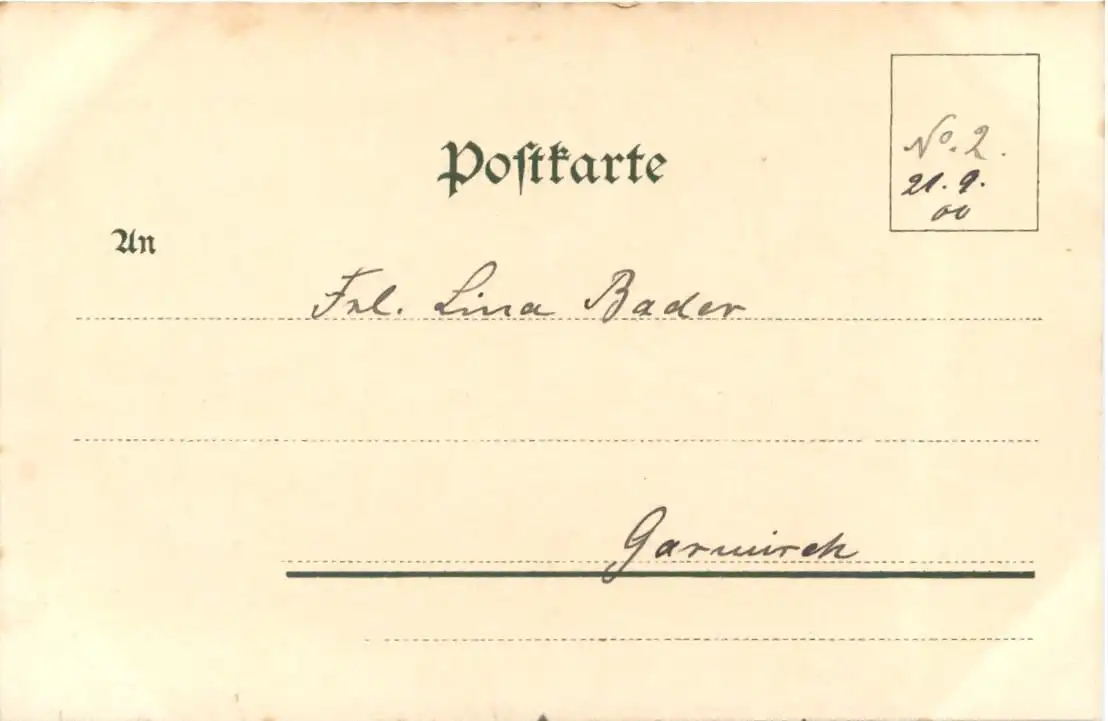 Postkarte
No. 2.
21. 9.
00
An
Frl. Lina Bader
Garmisch